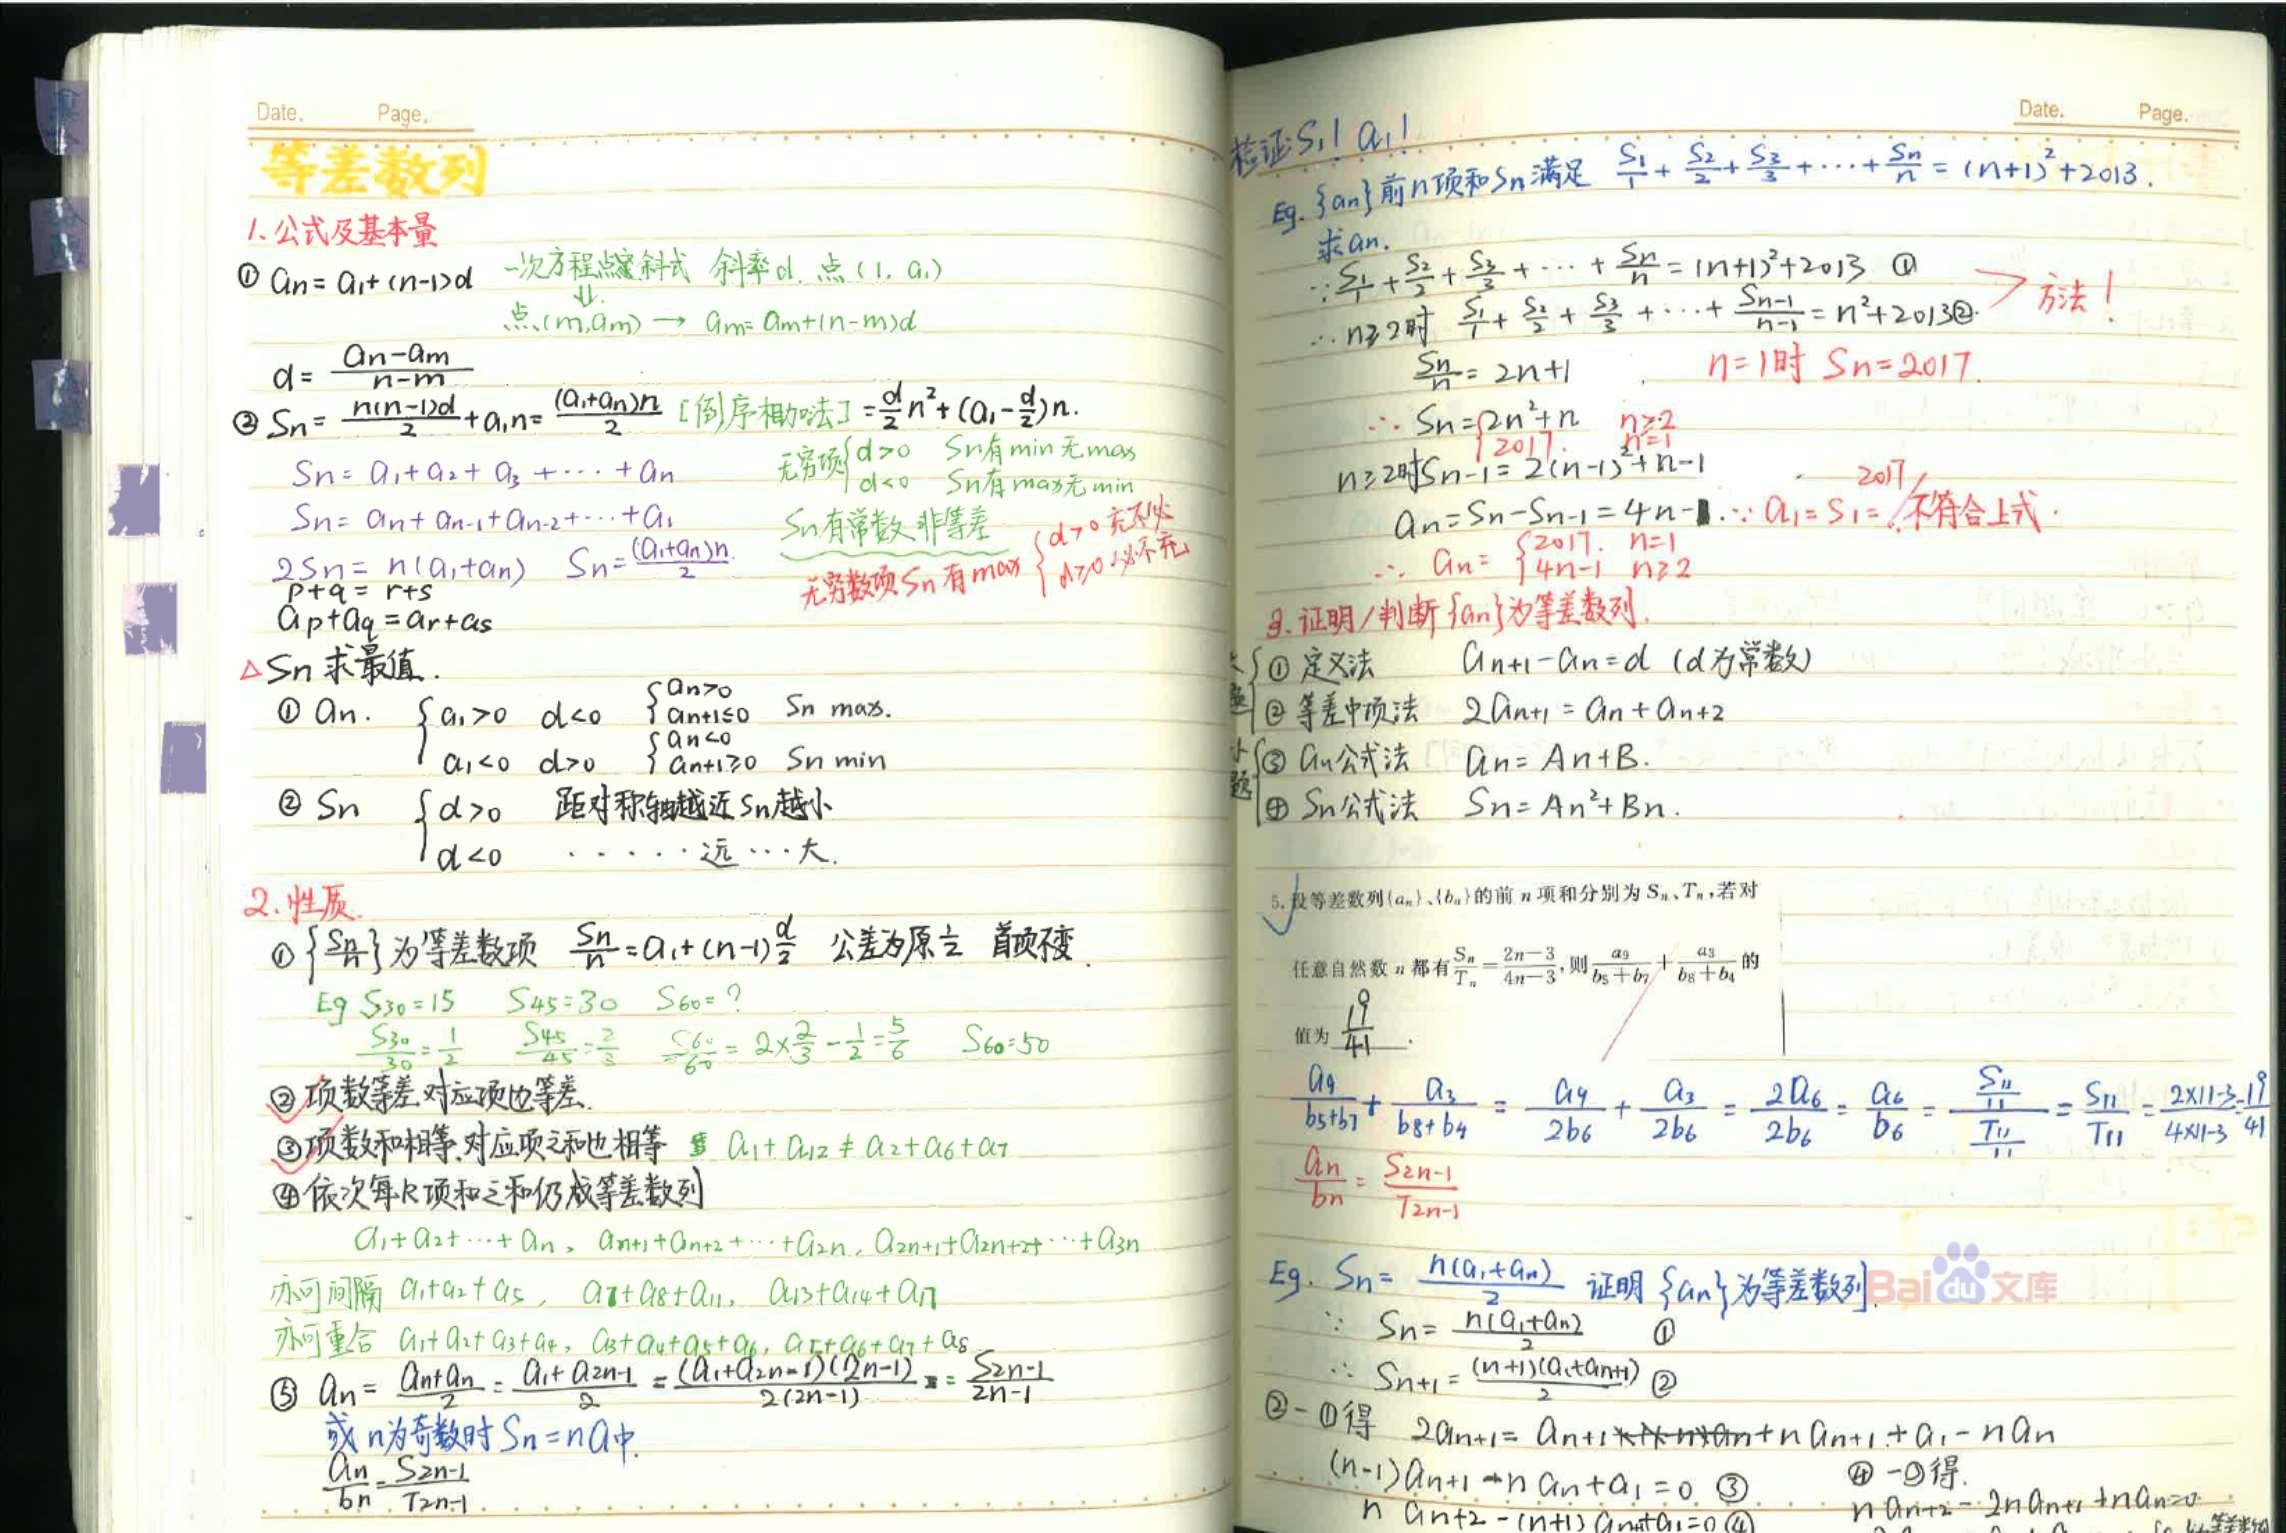 Date. Page.
等差数列
1. 公式及基本量
① an = a1 + (n-1)d 一次方程点斜式 斜率d. 点(1, a1)
⇓
点(m, am) → am = am + (n-m)d
d = (an - am)/(n-m)
② Sn = n(n-1)d/2 + a1n = (a1+an)n/2 [倒序相加法] = d/2 n² + (a1 - d/2)n.
Sn = a1 + a2 + a3 + ⋯ + an
Sn = an + an-1 + an-2 + ⋯ + a1
2Sn = n(a1+an) Sn = (a1+an)n/2.
无穷项 { d>0 Sn有min无max
d<0 Sn有max无min
Sn有常数,非等差
无穷数项Sn有max { d>0 充不必
d≥0 必不充
p+q = r+s
ap+aq = ar+as
△ Sn 求最值.
① an. { a1>0 d<0 { an>0 an+1≤0 Sn max.
a1<0 d>0 { an<0 an+1≥0 Sn min
② Sn { d>0 距对称轴越近Sn越小
d<0 ⋯⋯ 远 ⋯ 大.
2. 性质.
① {Sn/n} 为等差数项 Sn/n = a1 + (n-1) d/2 公差为原1/2 首项不变.
Eg S30=15 S45=30 S60=?
S30/30 = 1/2 S45/45 = 2/3 S60/60 = 2×2/3 - 1/2 = 5/6 S60=50
② 项数等差,对应项也等差.
③ 项数和相等,对应项之和也相等 a1+a12 ≠ a2+a6+a7
④ 依次每k项和之和仍成等差数列
a1+a2+⋯+an, an+1+an+2+⋯+a2n, a2n+1+a2n+2+⋯+a3n
亦可间隔 a1+a2+a5, a7+a8+a11, a13+a14+a17
亦可重合 a1+a2+a3+a4, a3+a4+a5+a6, a5+a6+a7+a8
⑤ an = (an+an)/2 = (a1+a2n-1)/2 = (a1+a2n-1)(2n-1)/2(2n-1) = S2n-1/2n-1
或n为奇数时 Sn = na中.
an/bn = S2n-1/T2n-1
Date. Page.
检证S1! a1!
Eg. {an}前n项和Sn满足 S1/1 + S2/2 + S3/3 + ⋯ + Sn/n = (n+1)² + 2013.
求an.
∵ S1/1 + S2/2 + S3/3 + ⋯ + Sn/n = (n+1)² + 2013 ①
∴ n≥2时 S1/1 + S2/2 + S3/3 + ⋯ + Sn-1/n-1 = n² + 2013 ②.
方法!
Sn/n = 2n+1 n=1时 Sn=2017.
∴ Sn = { 2n²+n n≥2
2017. n=1
n≥2时 Sn-1 = 2(n-1)² + n-1
an = Sn - Sn-1 = 4n-1. ∵ a1 = S1 = 2017 不符合上式.
∴ an = { 2017. n=1
4n-1 n≥2
3. 证明/判断{an}为等差数列.
大题 ① 定义法 an+1 - an = d (d为常数)
② 等差中项法 2an+1 = an + an+2
小题 ③ an公式法 an = An+B.
④ Sn公式法 Sn = An²+Bn.
5. 设等差数列{an}、{bn}的前n项和分别为Sn、Tn,若对
任意自然数n都有Sn/Tn = 2n-3/4n-3,则a9/b5+b7 + a3/b8+b4的
值为 19/41 .
a9/b5+b7 + a3/b8+b4 = a9/2b6 + a3/2b6 = 2a6/2b6 = a6/b6 = (S11/11)/(T11/11) = S11/T11 = 2×11-3/4×11-3 = 19/41
an/bn = S2n-1/T2n-1
Eg. Sn = n(a1+an)/2 证明{an}为等差数列.
Bai du 文库
∵ Sn = n(a1+an)/2 ①
∴ Sn+1 = (n+1)(a1+an+1)/2 ②
②-①得 2an+1 = an+1 + nan+1 + a1 - nan
(n-1)an+1 - nan + a1 = 0 ③ ④-③得.
nan+2 - (n+1)an+1 + a1 = 0 ④ nan+2 - 2nan+1 + nan = 0